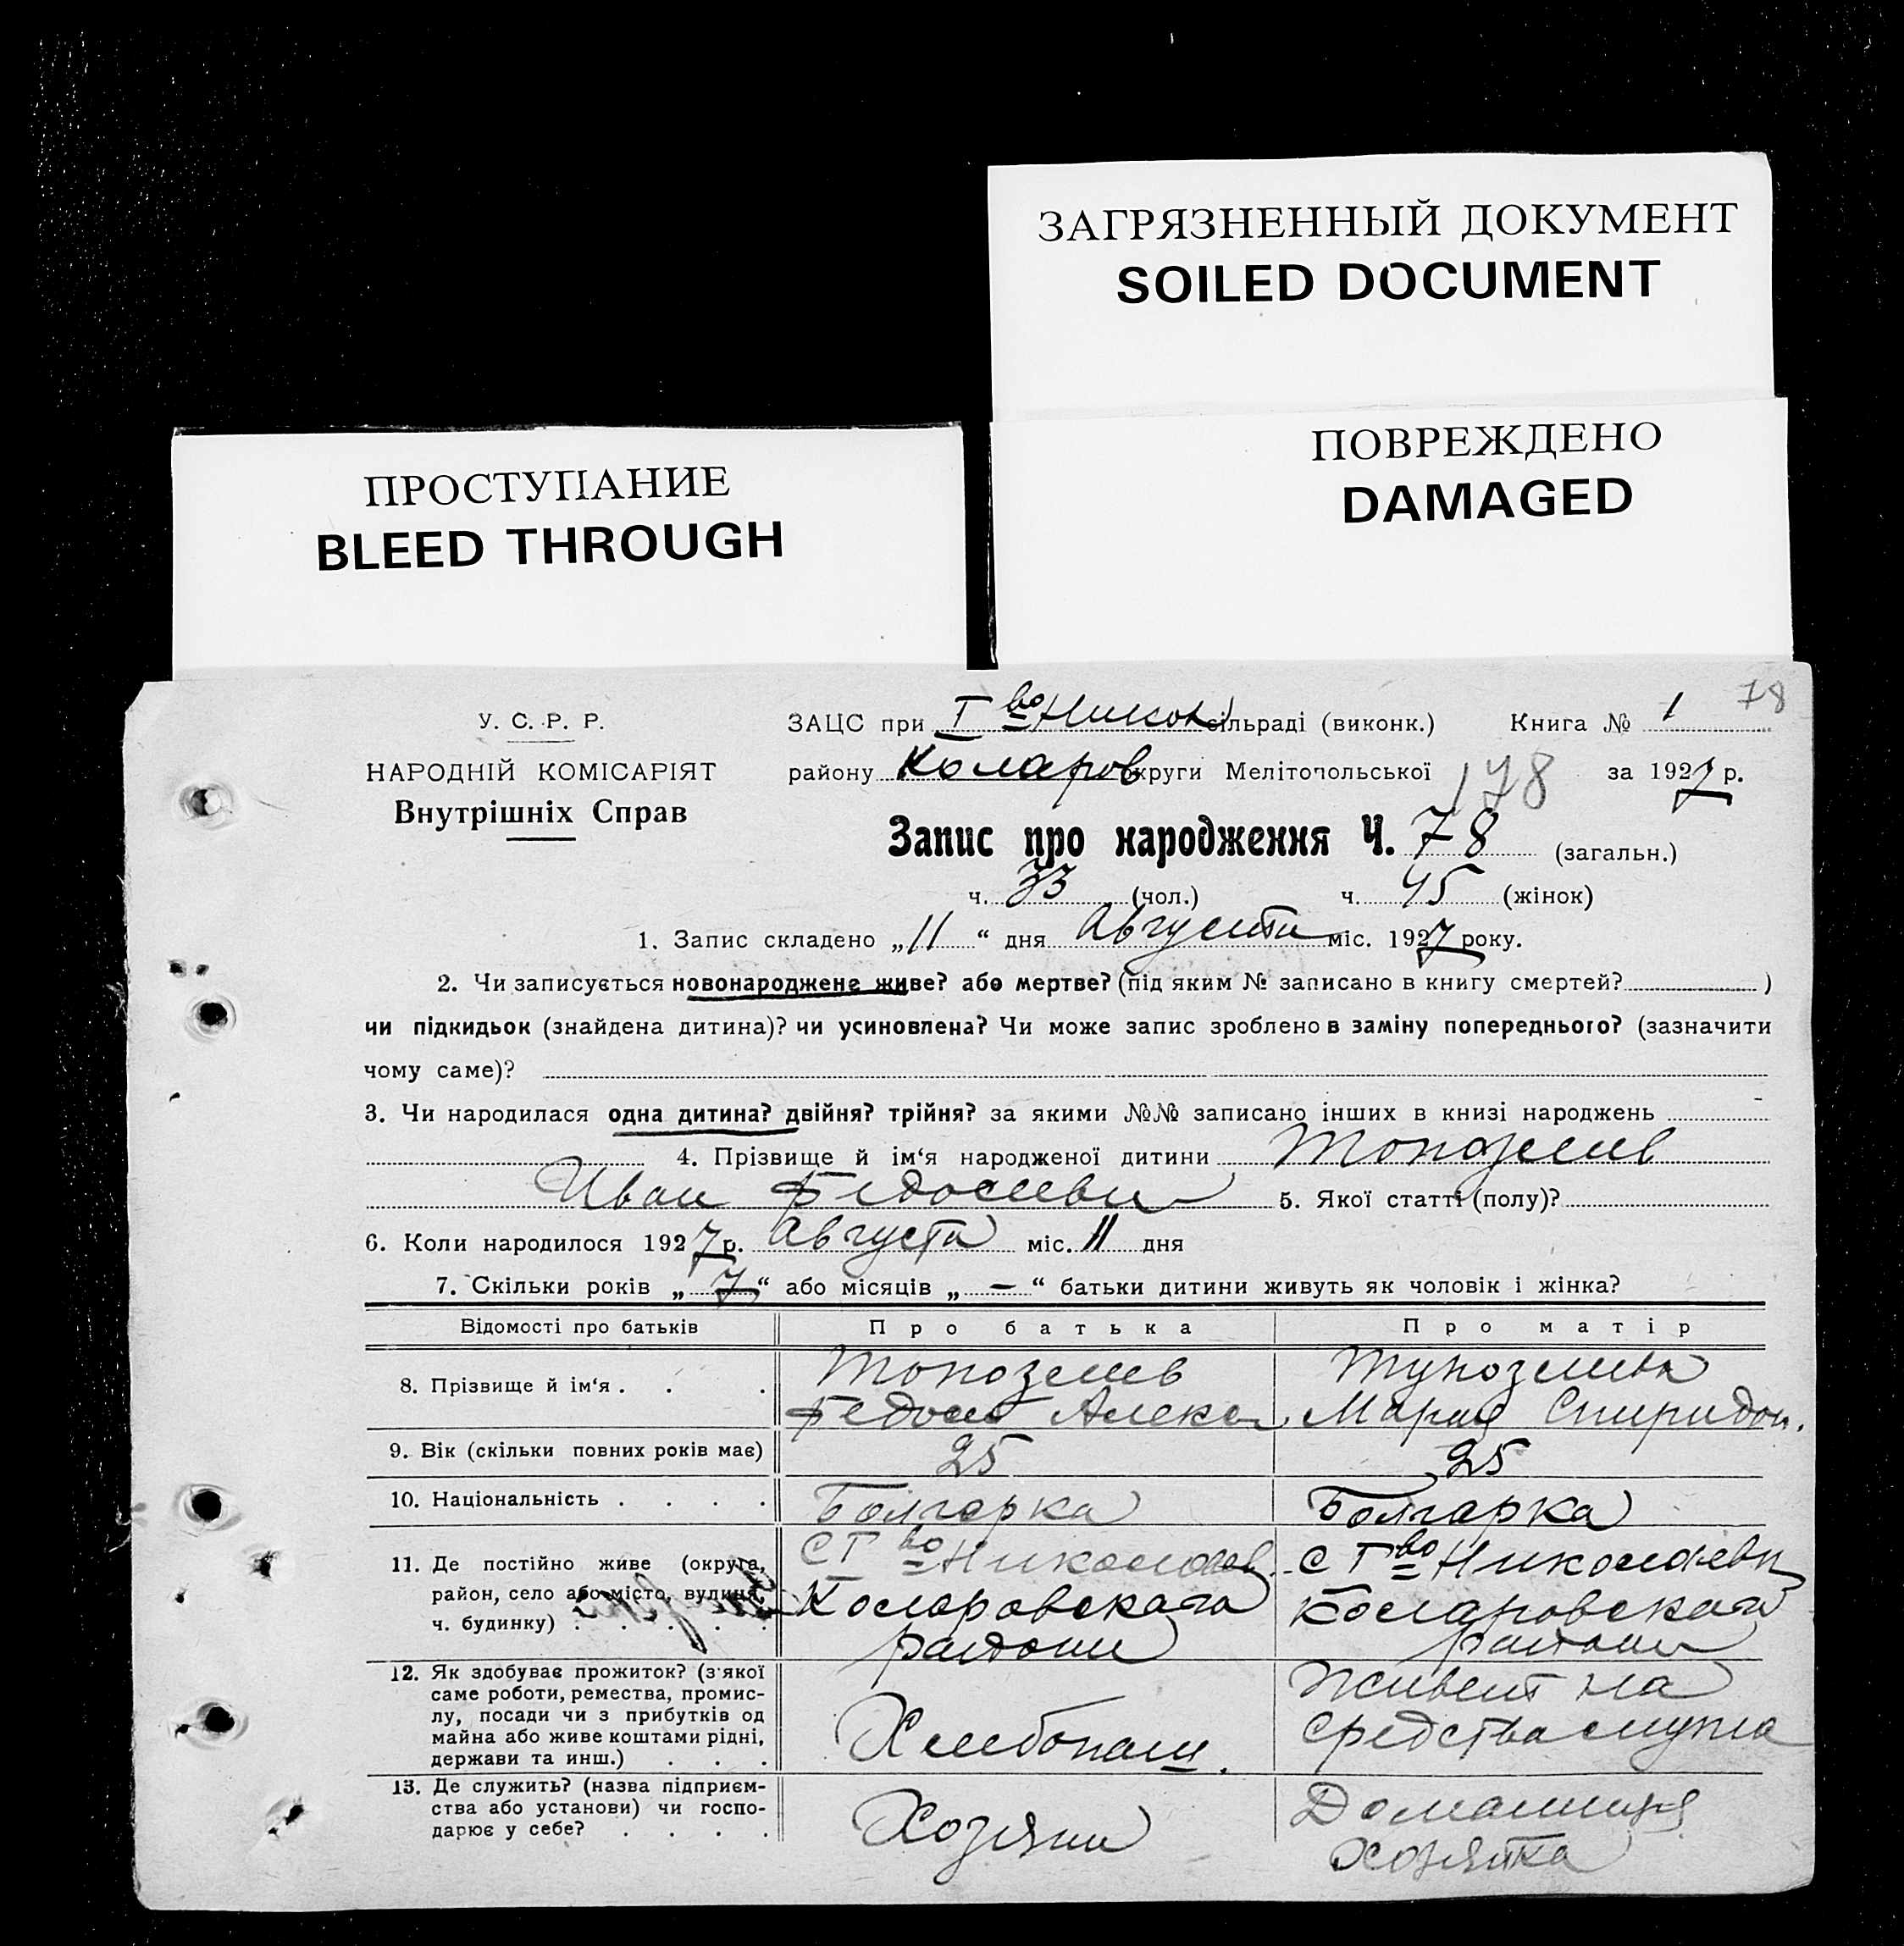 ЗАГРЯЗНЕННЫЙ ДОКУМЕНТ
SOILED DOCUMENT
ПОВРЕЖДЕНО
DAMAGED
ПРОСТУПАНИЕ
BLEED THROUGH
78
У. С. Р. Р.
НАРОДНІЙ КОМІСАРІЯТ
Внутрішніх Справ
ЗАЦС при I во Никол сільраді (виконк.) Книга № 1
району Коларов округи Мелітопольської 178 за 1927 р.
Запис про народження Ч. 78 (загальн.)
ч. 33 (чол.) ч. 45 (жінок)
1. Запис складено „11“ дня Августа міс. 1927 року.
2. Чи записується новонароджене живе? або мертве? (під яким № записано в книгу смертей? )
чи підкидьок (знайдена дитина)? чи усиновлена? Чи може запис зроблено в заміну попереднього? (зазначити
чому саме)?
3. Чи народилася одна дитина? двійня? трійня? за якими №№ записано інших в книзі народжень -
4. Прізвище й ім‘я народженої дитини Топоземев
Иван Федосеевич 5. Якої статті (полу)?
6. Коли народилося 1927 р. Августа міс. 11 дня
7. Скільки років „ 7 “ або місяців „ — “ батьки дитини живуть як чоловік і жінка?
Відомості про батьків Про батька Про матір
8. Прізвище й ім‘я . . .
Федосей Алекс
Мария Спиридон.
9. Вік (скільки повних років має) 25 25
10. Національність . . . . Болгарка Болгарка
11. Де постійно живе (округа,
район, село або місто, вулиця,
ч. будинку) . . . . .
С I во Николаев.
Коларовского
района
С I во Николаевк
Коларовского
района
12. Як здобуває прожиток? (з якої
саме роботи, ремества, промис-
лу, посади чи з прибутків од
майна або живе коштами рідні,
держави та инш.) . . .
Хлебопаш.
Живет на
средства мужа
13. Де служить? (назва підприєм-
ства або установи) чи госпо-
дарює у себе? . . . .
Хозяин
Домашняя
хозяйка